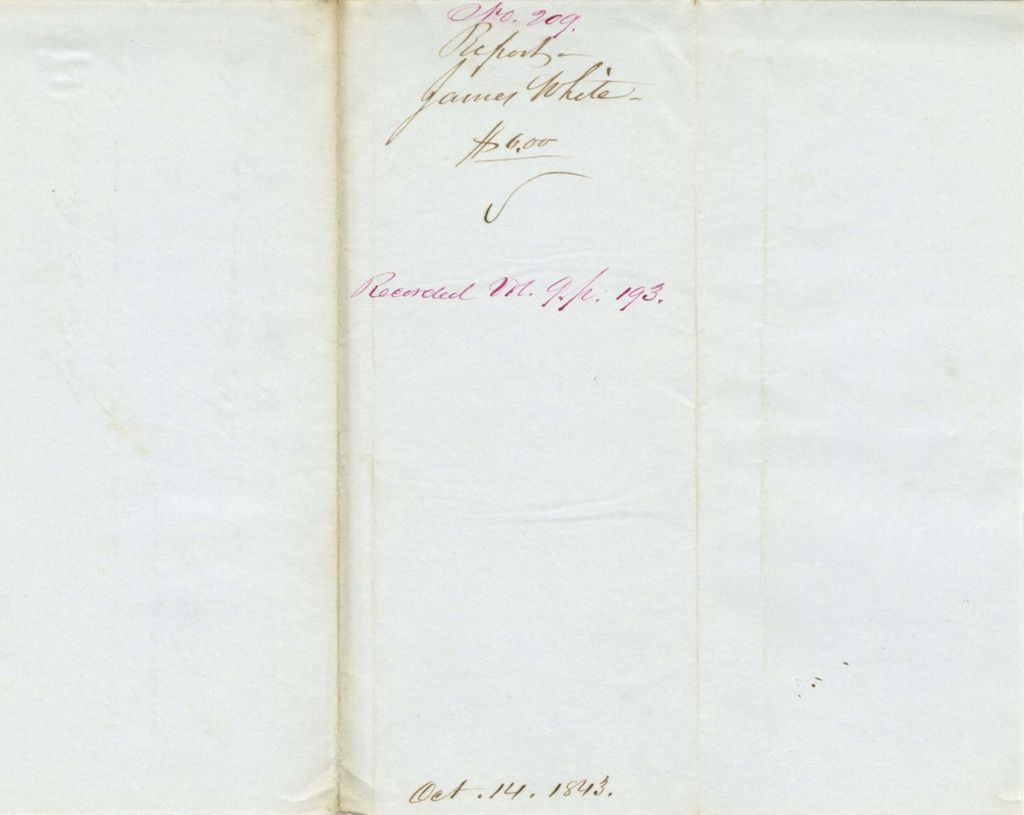 No. 209.
Report -
James White -
$6.00
Recorded Vol. 9. p. 193.
Oct. 14. 1843.